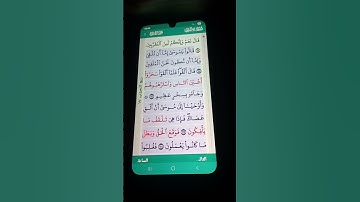 قَالَ نَعَمْ وَإِنَّكُمْ لَمِنَ الْمُقَرَّبِينَ
قَالُوا يَا مُوسَىٰ إِمَّا أَن تُلْقِيَ
وَإِمَّا أَن نَّكُونَ نَحْنُ الْمُلْقِينَ
قَالَ أَلْقُوا فَلَمَّا أَلْقَوْا سَحَرُوا
أَعْيُنَ النَّاسِ وَاسْتَرْهَبُوهُمْ
وَجَاءُوا بِسِحْرٍ عَظِيمٍ
وَأَوْحَيْنَا إِلَىٰ مُوسَىٰ أَنْ أَلْقِ
عَصَاكَ فَإِذَا هِيَ تَلْقَفُ مَا
يَأْفِكُونَ فَوَقَعَ الْحَقُّ وَبَطَلَ
مَا كَانُوا يَعْمَلُونَ فَغُلِبُوا